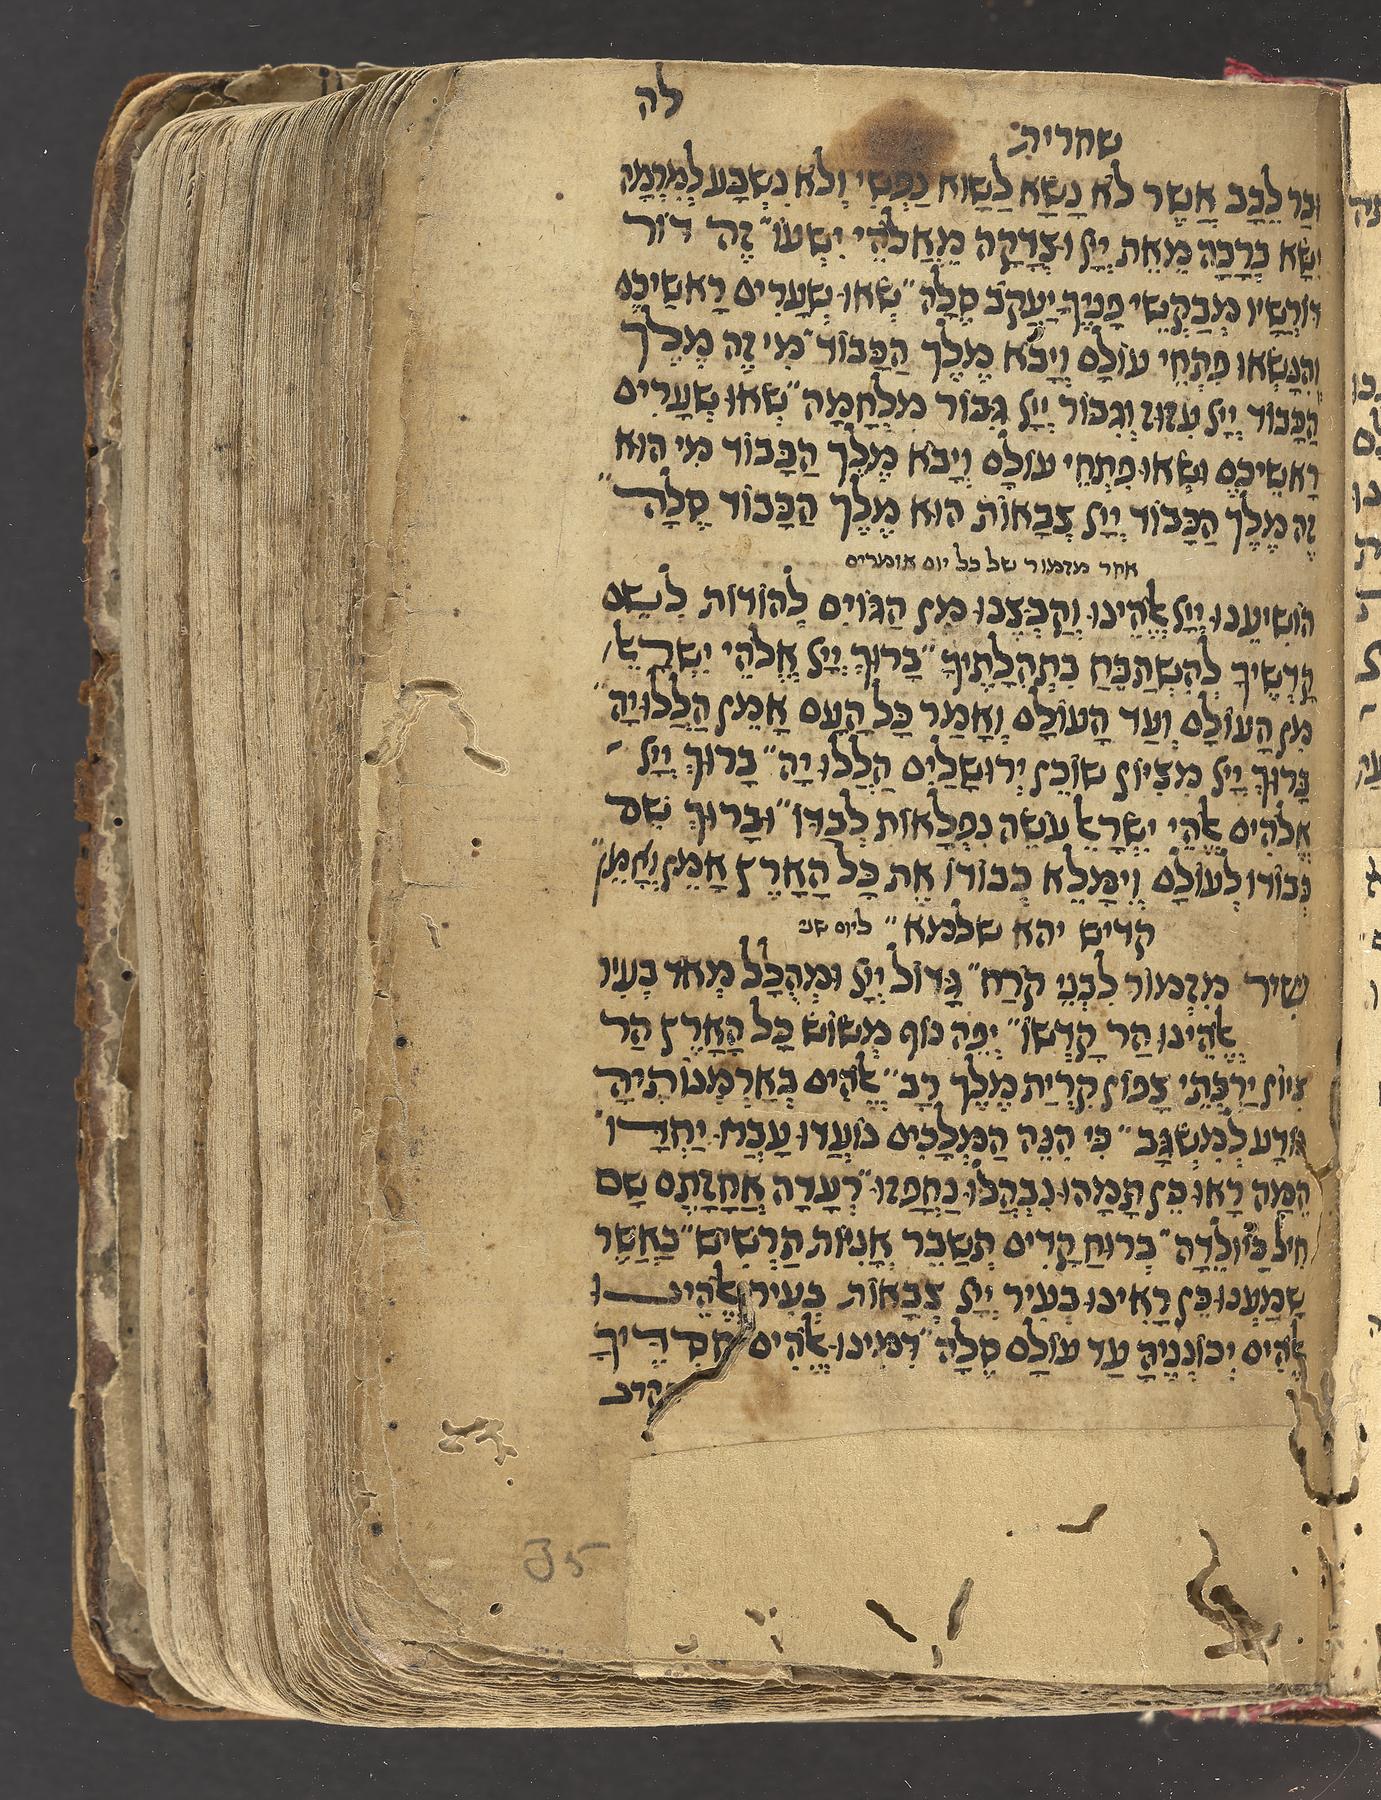 לה
שחרית
וּבַר לֵבָב אֲשֶׁר לֹא נָשָׂא לַשָּׁוְא נַפְשִׁי וְלֹא נִשְׁבַּע לְמִרְמָה
יִשָּׂא בְרָכָה מֵאֵת יְיָ וּצְדָקָה מֵאֱלֹהֵי יִשְׁעוֹ״ זֶה דּוֹר
דּוֹרְשָׁיו מְבַקְשֵׁי פָנֶיךָ יַעֲקֹב סֶלָה״ שְׂאוּ שְׁעָרִים רָאשֵׁיכֶם
וְהִנָּשְׂאוּ פִּתְחֵי עוֹלָם וְיָבֹא מֶלֶךְ הַכָּבוֹד״ מִי זֶה מֶלֶךְ
הַכָּבוֹד יְיָ עִזּוּז וְגִבּוֹר יְיָ גִּבּוֹר מִלְחָמָה״ שְׂאוּ שְׁעָרִים
רָאשֵׁיכֶם וּשְׂאוּ פִּתְחֵי עוֹלָם וְיָבֹא מֶלֶךְ הַכָּבוֹד מִי הוּא
זֶה מֶלֶךְ הַכָּבוֹד יְיָ צְבָאוֹת הוּא מֶלֶךְ הַכָּבוֹד סֶלָה״
אחר מזמור של כל יום אומרים
הוֹשִׁיעֵנוּ יְיָ אֱלֹהֵינוּ וְקַבְּצֵנוּ מִן הַגּוֹיִם לְהוֹדוֹת לְשֵׁם
קָדְשֶׁךָ לְהִשְׁתַּבֵּחַ בִּתְהִלָּתֶיךָ״ בָּרוּךְ יְיָ אֱלֹהֵי יִשְׂרָאֵל
מִן הָעוֹלָם וְעַד הָעוֹלָם וְאָמַר כָּל הָעָם אָמֵן הַלְלוּיָהּ״
בָּרוּךְ יְיָ מִצִּיּוֹן שׁוֹכֵן יְרוּשָׁלַיִם הַלְלוּיָהּ״ בָּרוּךְ יְיָ
אֱלֹהִים אֱלֹהֵי יִשְׂרָאֵל עֹשֵׂה נִפְלָאוֹת לְבַדּוֹ״ וּבָרוּךְ שֵׁם
כְּבוֹדוֹ לְעוֹלָם וְיִמָּלֵא כְבוֹדוֹ אֶת כָּל הָאָרֶץ אָמֵן וְאָמֵן״
קדיש יהא שלמא״ ליום שני
שִׁיר מִזְמוֹר לִבְנֵי קֹרַח״ גָּדוֹל יְיָ וּמְהֻלָּל מְאֹד בְּעִיר
אֱלֹהֵינוּ הַר קָדְשׁוֹ״ יְפֵה נוֹף מְשׂוֹשׂ כָּל הָאָרֶץ הַר
צִיּוֹן יַרְכְּתֵי צָפוֹן קִרְיַת מֶלֶךְ רָב״ אֱלֹהִים בְּאַרְמְנוֹתֶיהָ
נוֹדַע לְמִשְׂגָּב״ כִּי הִנֵּה הַמְּלָכִים נוֹעֲדוּ עָבְרוּ יַחְדָּו״
הֵמָּה רָאוּ כֵּן תָּמָהוּ נִבְהֲלוּ נֶחְפָּזוּ״ רְעָדָה אֲחָזָתַם שָׁם
חִיל כַּיּוֹלֵדָה״ בְּרוּחַ קָדִים תְּשַׁבֵּר אֳנִיּוֹת תַּרְשִׁישׁ״ כַּאֲשֶׁר
שָׁמַעְנוּ כֵּן רָאִינוּ בְּעִיר יְיָ צְבָאוֹת בְּעִיר אֱלֹהֵינוּ
אֱלֹהִים יְכוֹנְנֶיהָ עַד עוֹלָם סֶלָה״ דִּמִּינוּ אֱלֹהִים חַסְדֶּיךָ
בקרב
35